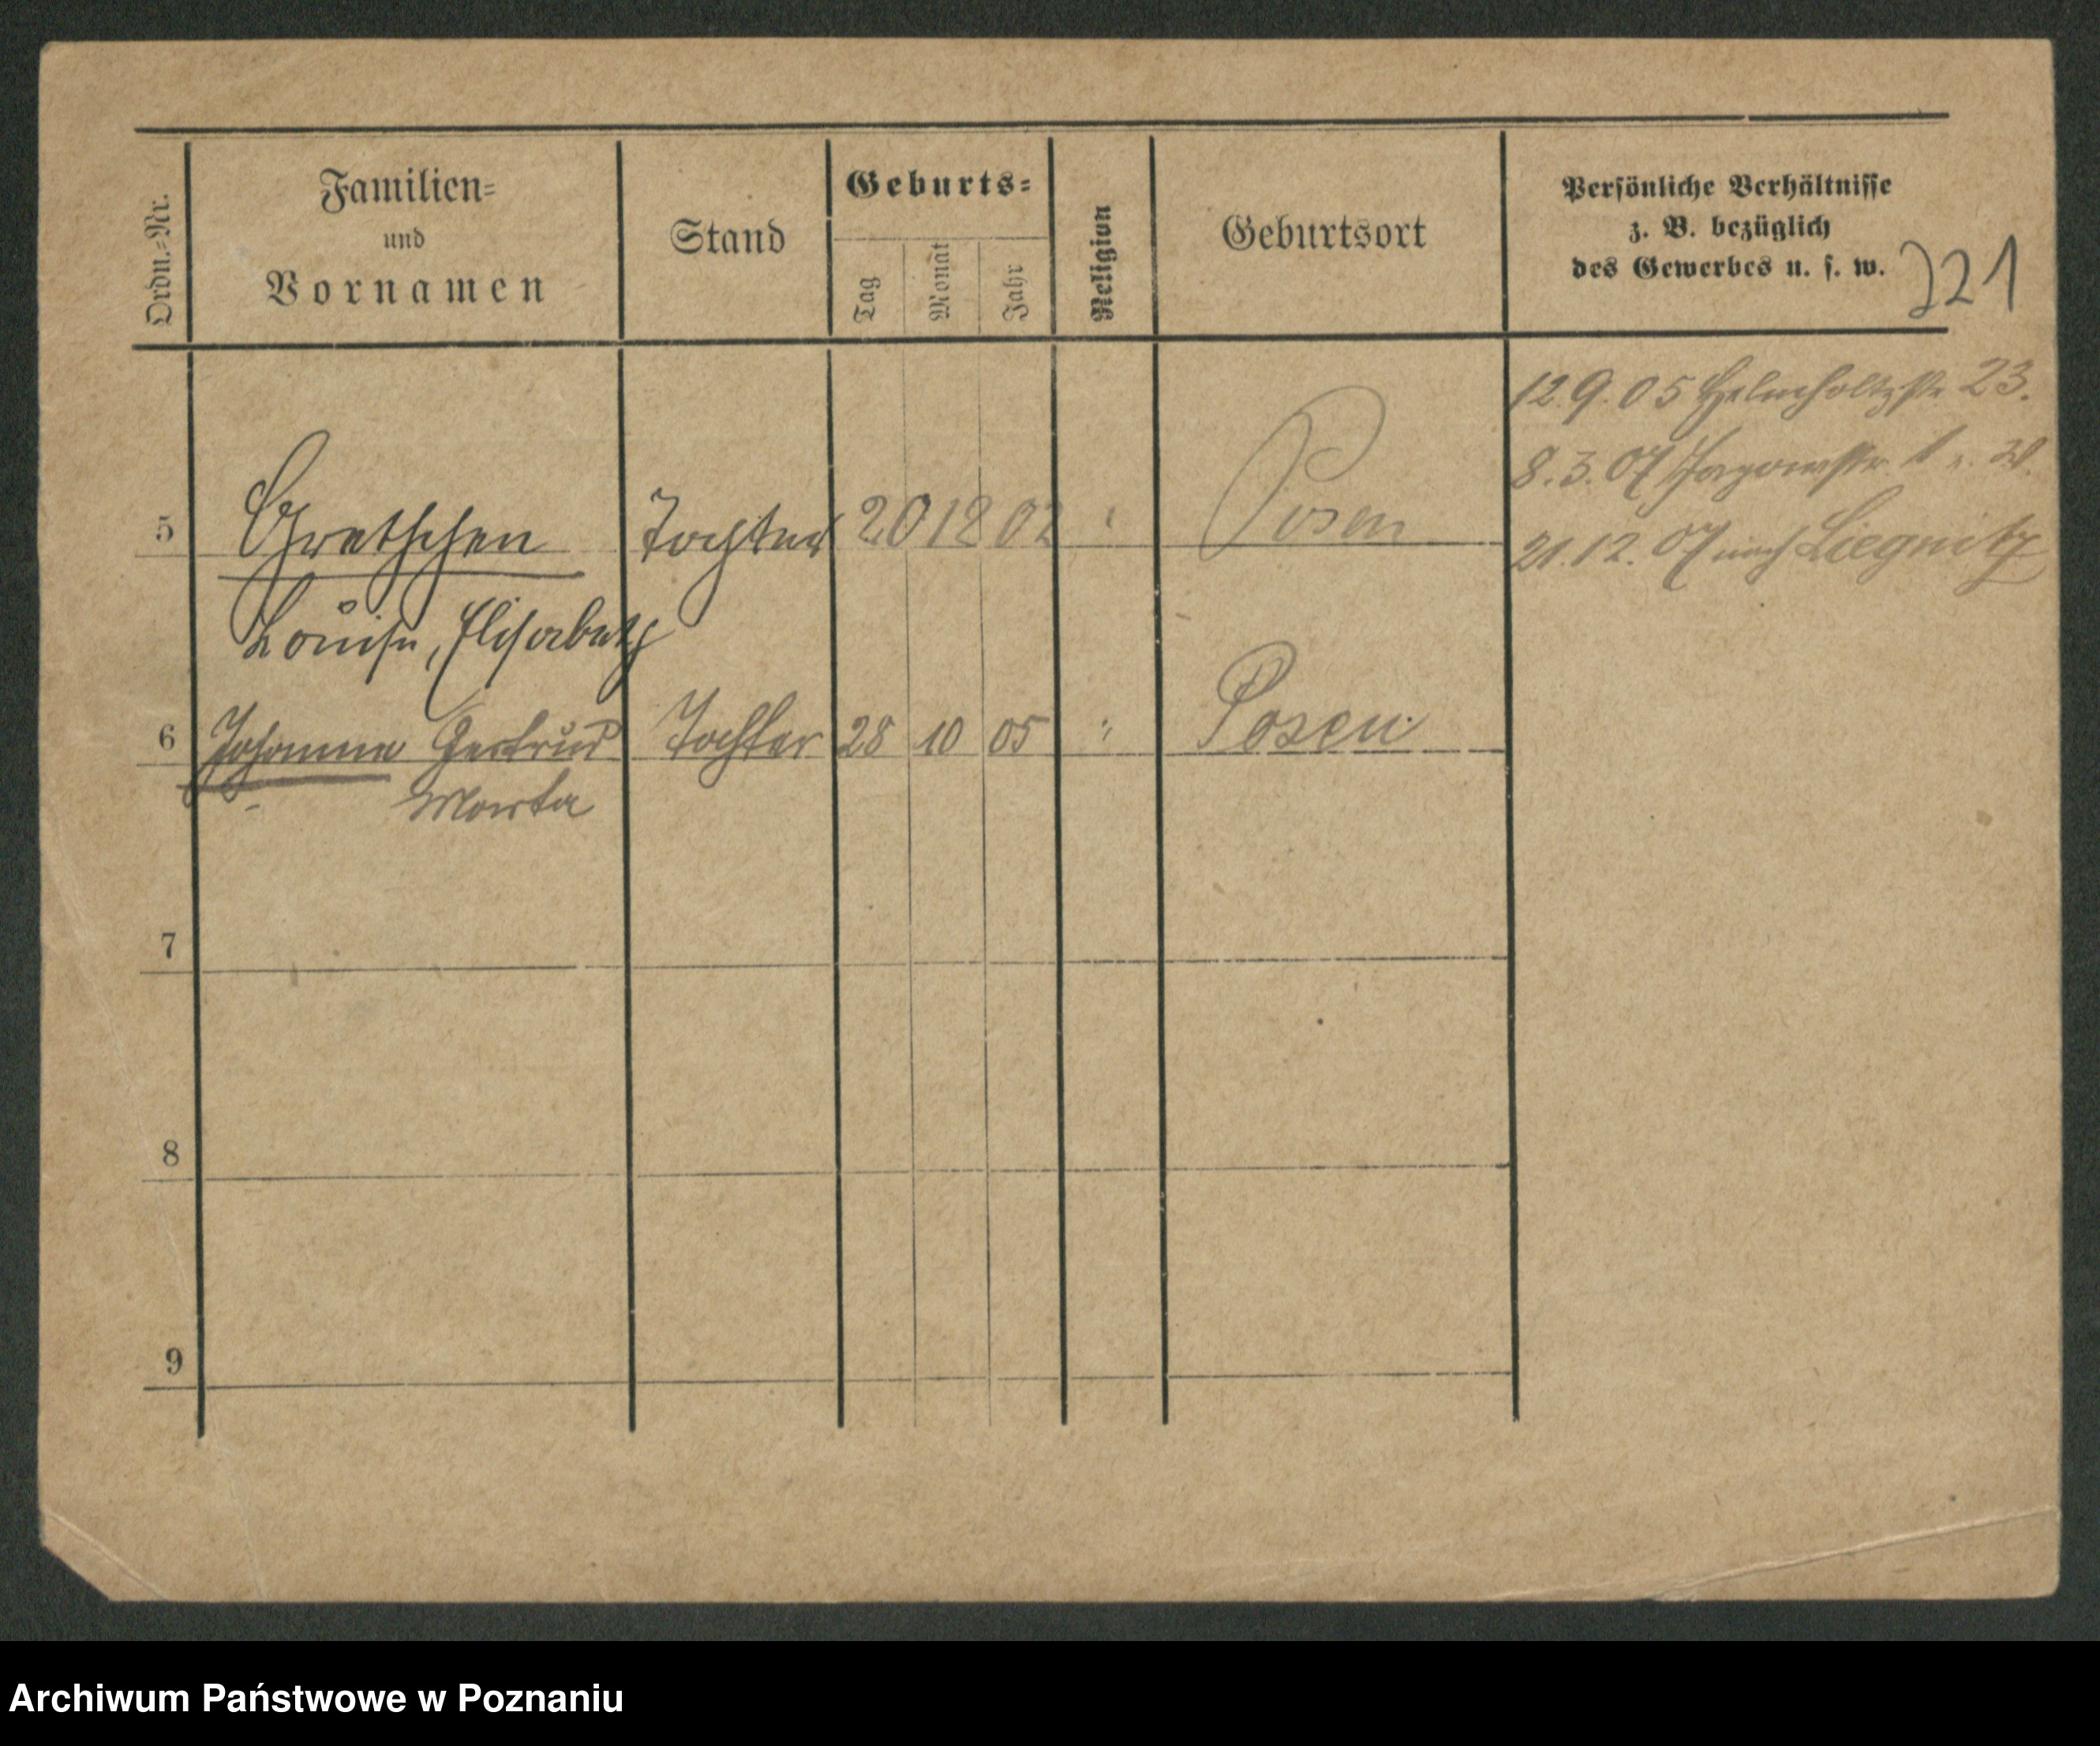 Ordn.=Nr.
Familien=
und
Vornamen
Stand
Geburts=
Tag
Monat
Jahr
Religion
Geburtsort
Persönliche Verhältnisse
z. B. bezüglich
des Gewerbes u. s. w.
221
12.9.05 Helmholtzstr 23.
8.3.07 1
21.12.07 nach Liegnitz
5 Gretchen Tochter 20 12 02 " Posen
Louise, Elisabeth
6 Johanna Gertrud Tochter 28 10 05 " Posen
Marta
7
8
9
Archiwum Państwowe w Poznaniu